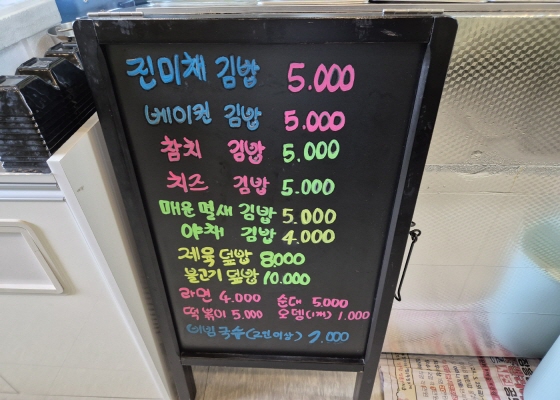 진미채 김밥 5.000
베이컨 김밥 5.000
참치 김밥 5.000
치즈 김밥 5.000
매운멸새 김밥 5.000
야채 김밥 4.000
제육덮밥 8000
불고기 덮밥 10.000
라면 4.000 순대 5.000
떡볶이 5.000 오뎅(1개) 1.000
국수(2인이상) 7.000